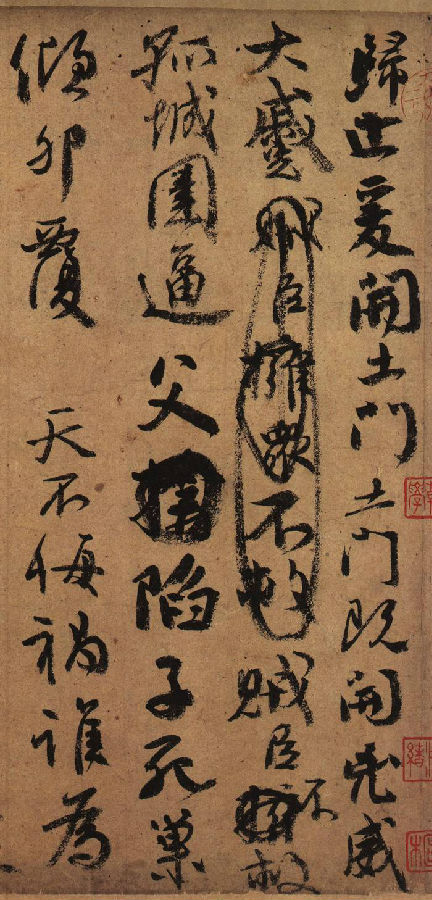 歸止爰開土門土門既開兇威
大蹙賊臣擁眾不救賊臣不救
孤城圍逼父陷子死巢
傾卵覆 天不悔禍誰為